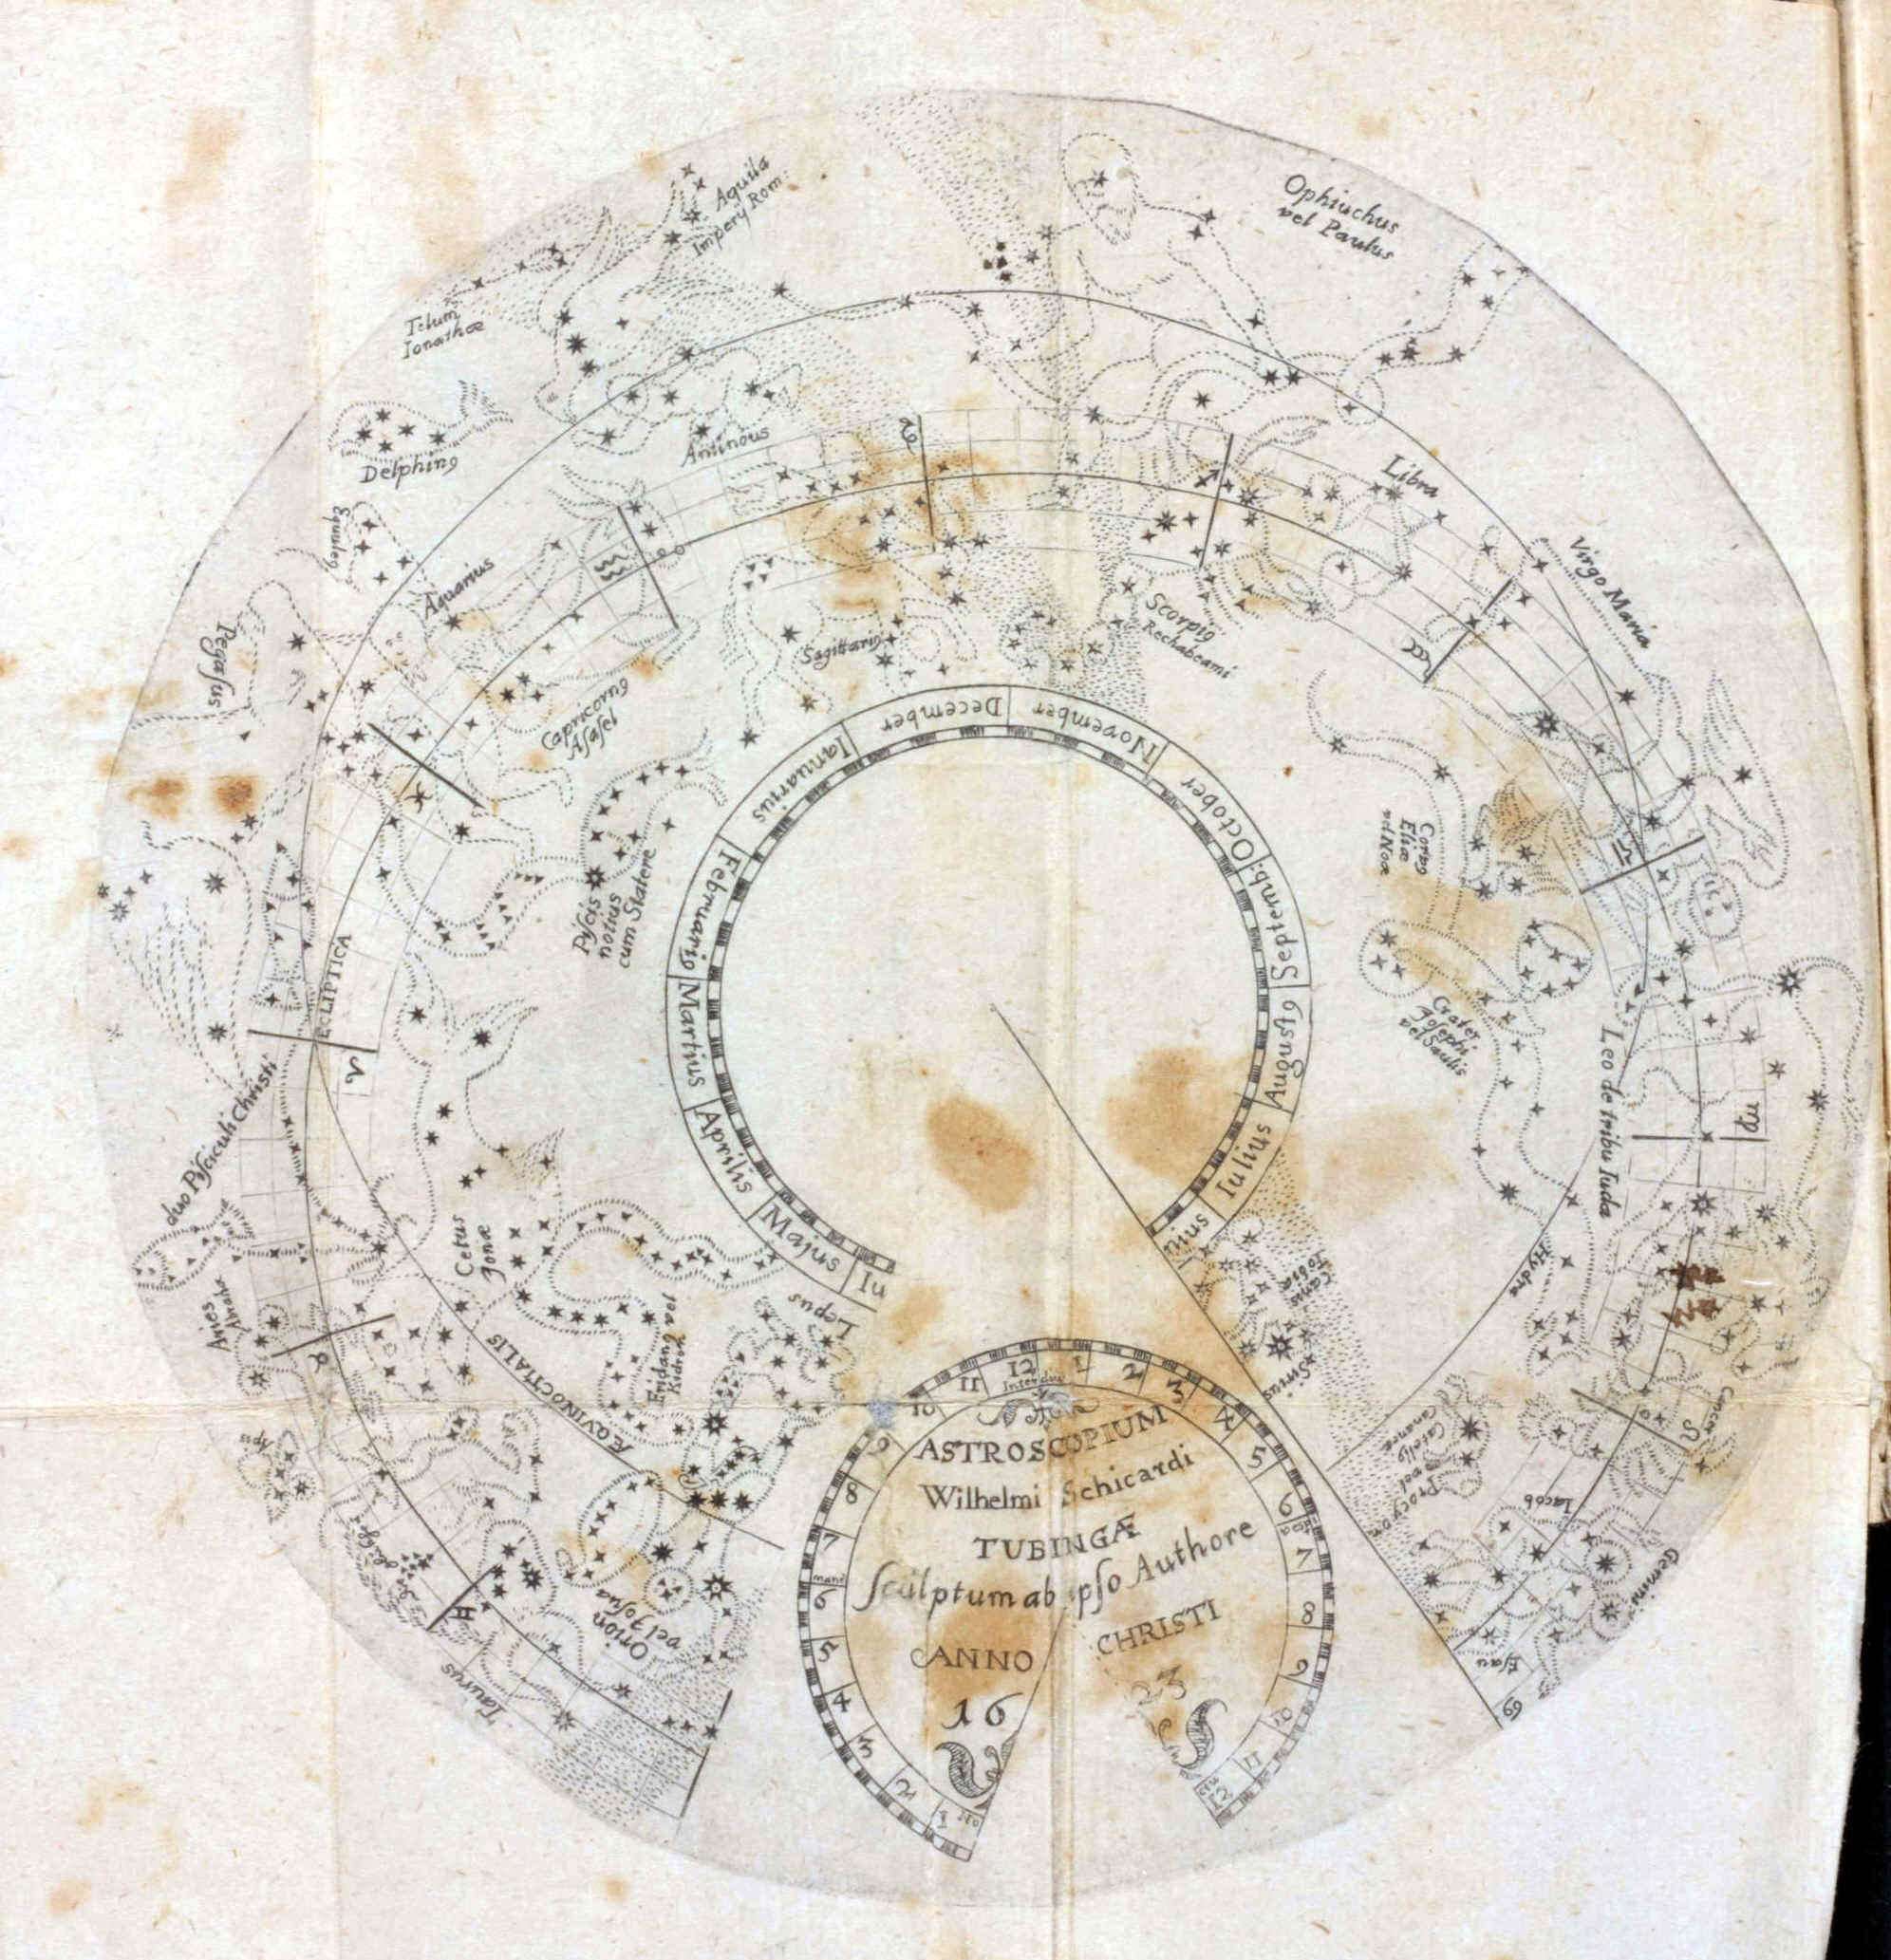 Aquila
Impery Rom:
Ophiuchus
vel Paulus
Telum
Ionathæ
Delphin9
Antinous
Libra
Equule9
Aquarius
Virgo Maria
Pegasus
Sagittari9
Scorpi9
Rechabeami
Capricorn9
Asasel
Piscis
notius
cum Statere
Corv9
Eliæ
vel Noæ
Crater
Josephi
vel Saulis
Leo de tribu Iuda
ECLIPTICA
duo Pisciculi Christi
Cetus
Jonæ
Aries
Eridan9 vel
Kidron
Lepus
ÆQVINOCTIALIS
Apis
Orion
vel Josua
Taurus
Canis
Tobiæ
Sirius
Hydra
Cancer
Procyon
vel
Catell9
Cananææ
Iacob
Esau
Gemini
Iu
Majus
Aprilis
Martius
Februari9
Ianuarius
December
November
October
Septemb:
August9
Iulius
nius
1
2
3
4
5
6
7
8
9
10
11
12
1
2
3
4
5
6
7
8
9
10
11
12
mane
Interdiu
ASTROSCOPIUM
Wilhelmi Schicardi
TUBINGÆ
Sculptum ab ipso Authore
ANNO CHRISTI
16 23